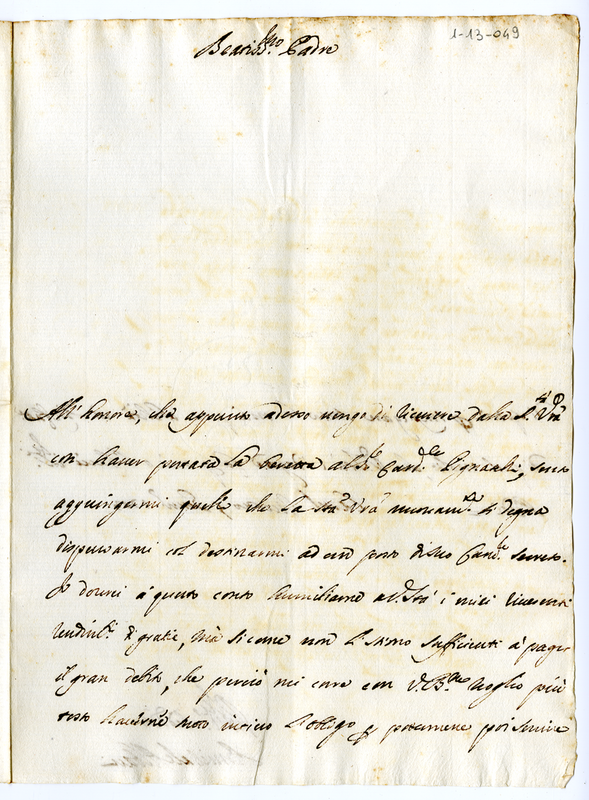 1-13-049
Beatiss.mo Padre
All' honore, che appunto adesso vengo di ricevere dalla S.tà V.ra
con haver portata la beretta al S.r Card.le Pignatelli, sento
aggiungermi quello che la S.tà V.ra nuovam.te si degna
dispensarmi col destinarmi ad un posto di suo Cam.re secreto.
Io dovrei à questo conto humiliare a V. S.tà i miei riverenti
rendim.ti di gratie, mà si come non li stimo sufficienti à pagar
il gran debito, che perciò mi corre con V. B.ne voglio più
tosto haverne meco intiero l'obligo p potermene poi servire